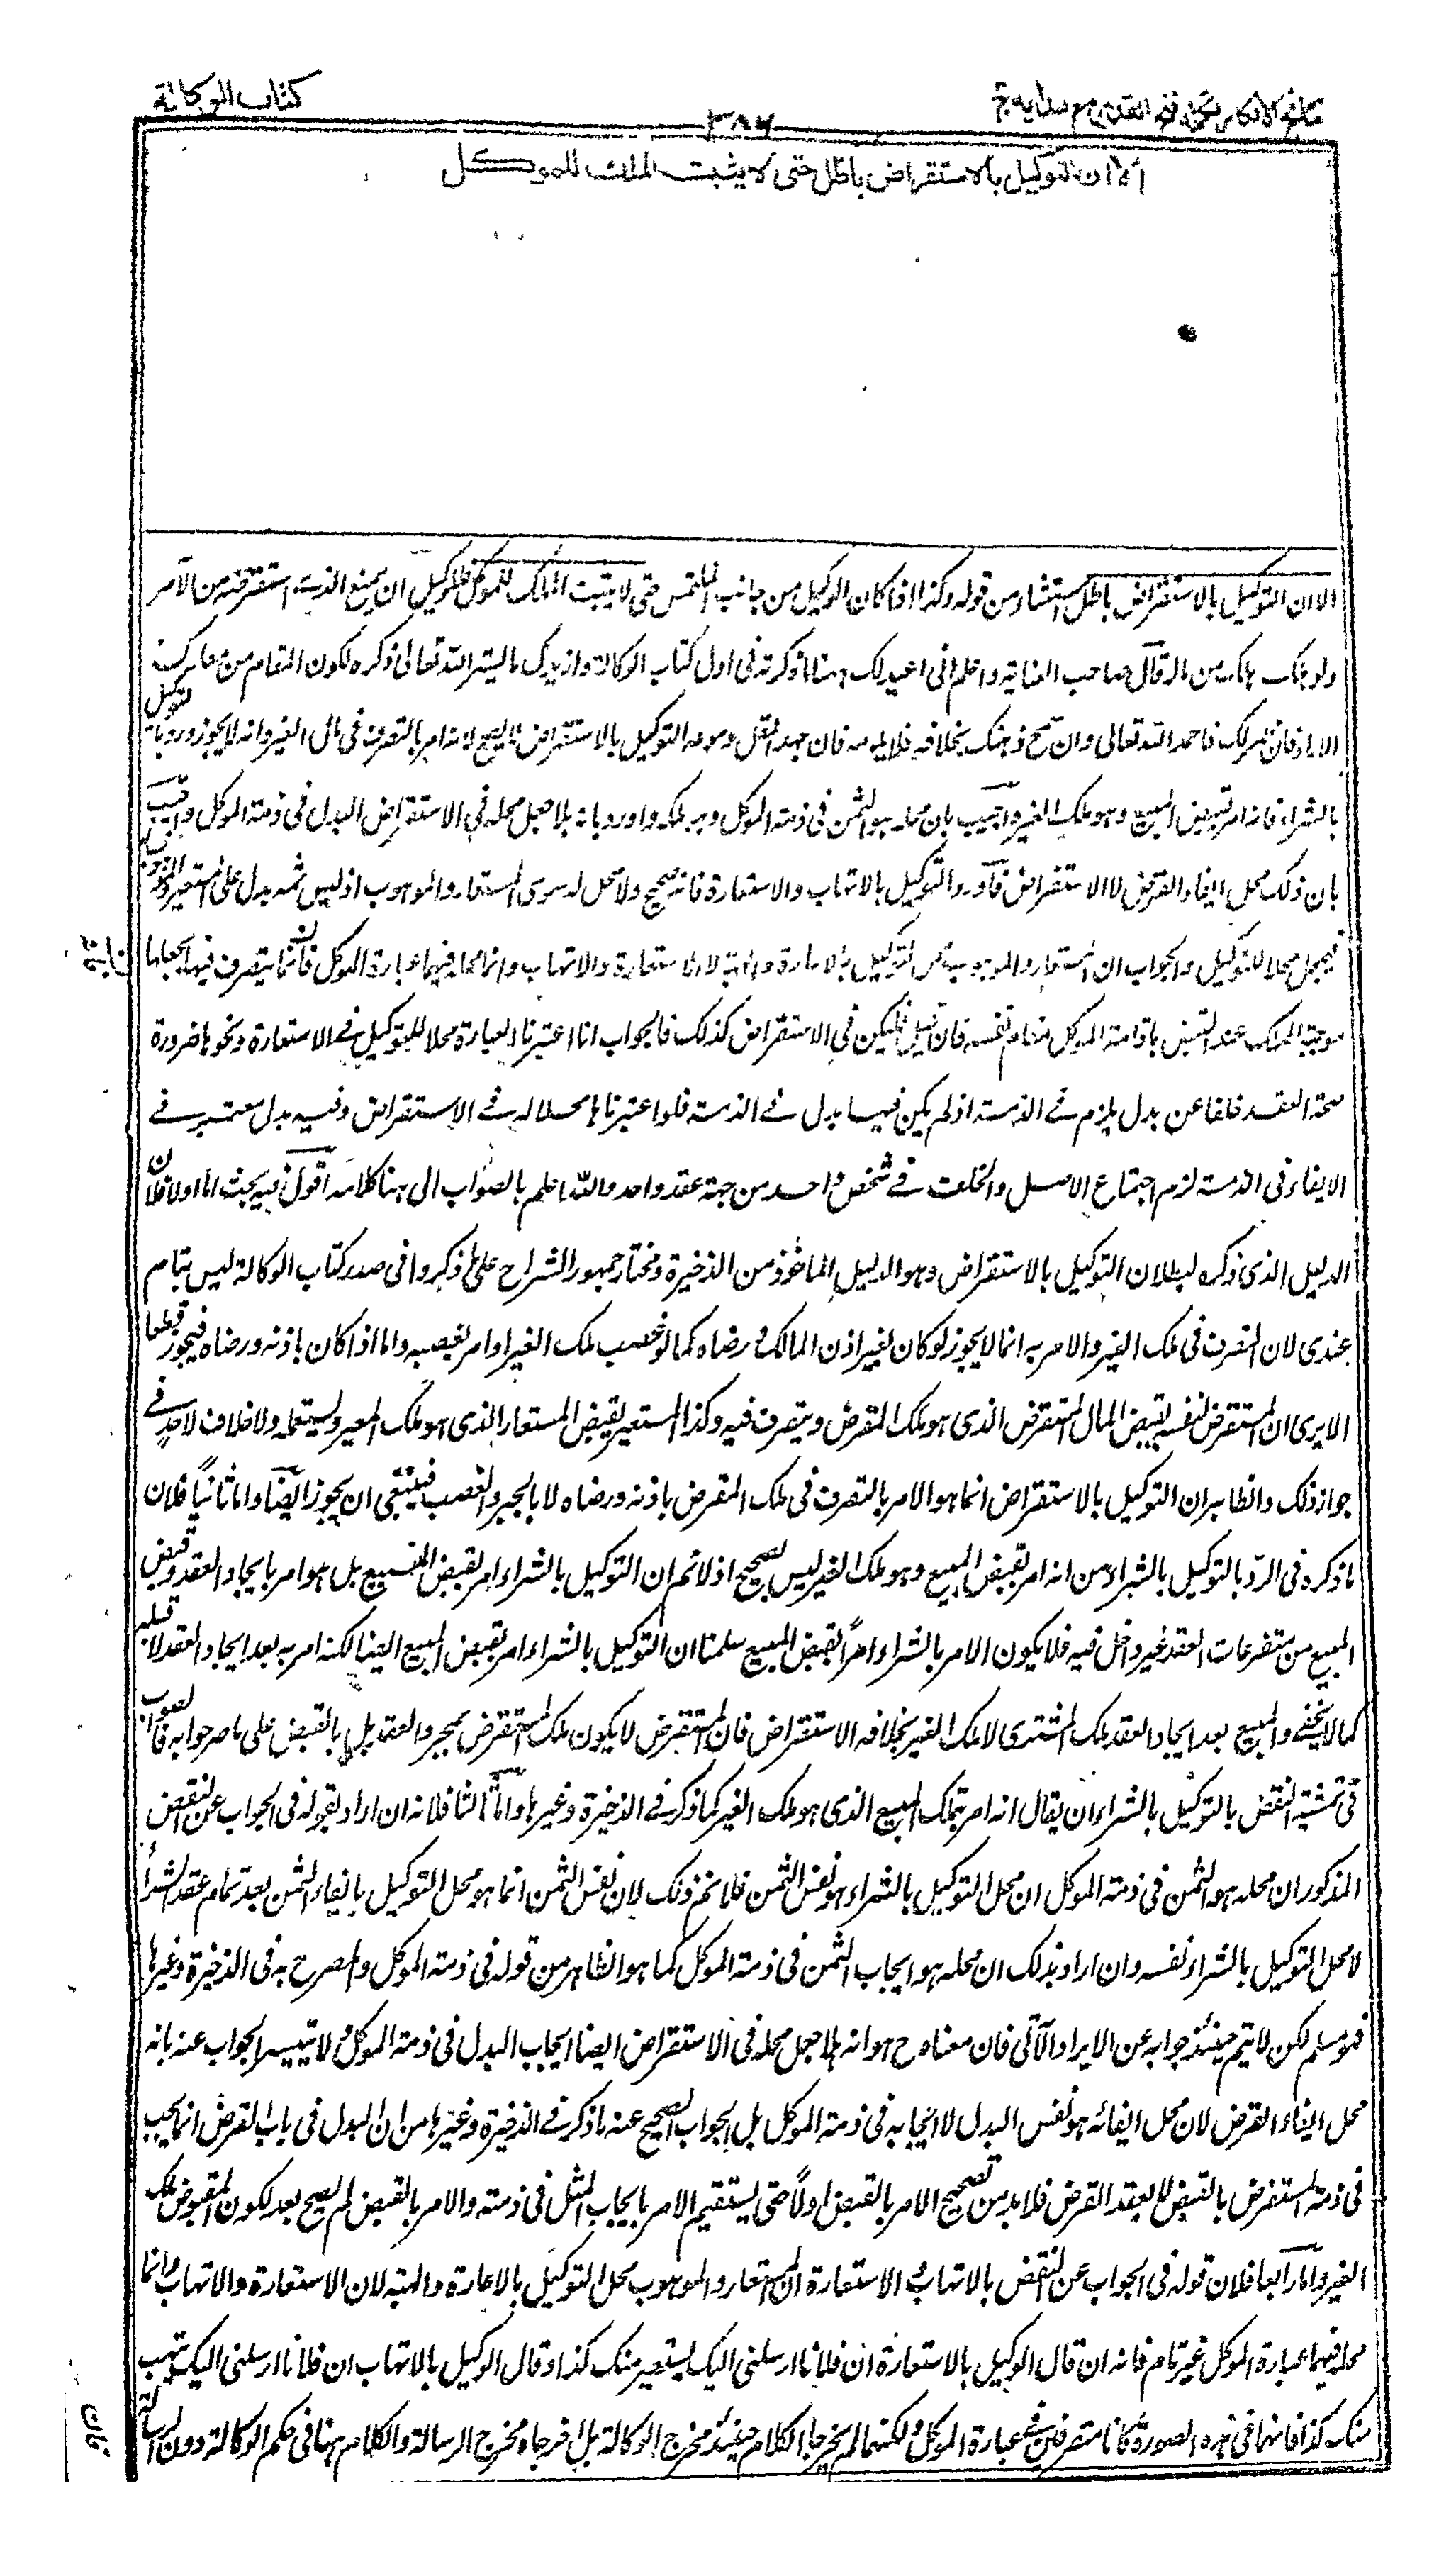 نتائج الافكار تكملة فتح القدير مع هداية ج
٣٨٦
كتاب الوكالة
الا ان التوكيل بالاستقراض باطل حتى لا يثبت الملك للموكل
الا ان التوكيل بالاستقراض باطل استثناء من قوله وكذا اذا كان الوكيل من جانب الملتمس حتى لا يثبت الملك للموكل فللوكيل ان يمنع الذى استقرضه من الآمر
ولو هلك هلك من ماله قال صاحب العناية واعلم انى اعيد لك هنا ما ذكرته فى اول كتاب الوكالة وازيدك ما يسر الله تعالى ذكره لكون المقام من معارك
الاياد فان ظهر لك فاحمد الله تعالى وان سمح ذهنك بخلافه فلا لوم فان جهد المقل دموعه التوكيل بالاستقراض لا يصح لانه امر بالتصرف فى مال الغير وانه لا يجوز ورد بالتوكيل
بالشراء فانه امر بقبض المبيع وهو ملك الغير واجيب بان محله هو الثمن فى ذمة الموكل وهو ملكه واورد بانه هلا جعل محله فى الاستقراض البدل فى ذمة الموكل واجيب
بان ذلك محل ايفاء القرض لا الاستقراض فاورد التوكيل بالاتهاب والاستعارة فانه صحيح ولا محل له سوى المستعار والموهوب اذ ليس ثمه بدل على المستعير والمتهب
فيجعل محلا للتوكيل والجواب ان المستعار والموهوب محل التوكيل بالاعارة والهبة لا الاستعارة والاتهاب وانما محله فيهما عبارة الموكل فانما يتصرف فيها بجعلها
موجبة الملك عند القبض باقامة الموكل مقام نفسه فان قيل فليكن فى الاستقراض كذلك فالجواب انا اعتبرنا العبارة محلا للتوكيل فى الاستعارة ونحوها ضرورة
صحة العقد خلفا عن بدل يلزم فى الذمة اذ لم يكن فيها بدل فى الذمة فلو اعتبرناها محلا له فى الاستقراض وفيه بدل معتبر فى
الايفاء فى الذمة لزم اجتماع الاصل والخلف فى شخص واحد من جهة عقد واحد والله اعلم بالصواب الى هنا كلامه اقول فيه بحث اما اولا فلان
الدليل الذى ذكره لبطلان التوكيل بالاستقراض وهو الدليل الماخوذ من الذخيرة ومختار جمهور الشراح على ما ذكروا فى صدر كتاب الوكالة ليس بتام
عندى لان التصرف فى ملك الغير والامر به انما لا يجوز لو كان لغير اذن المالك ورضاه كما لو غصب ملك الغير او امر بغصبه واما اذا كان باذنه ورضاه فيجوز قطعا
الا يرى ان المستقرض لنفسه يقبض المال المستقرض الذى هو ملك المقرض ويتصرف فيه وكذا المستعير يقبض المستعار الذى هو ملك المعير ويستعمله ولا خلاف لاحد فى
جواز ذلك والظاهر ان التوكيل بالاستقراض انما هو الامر بالتصرف فى ملك المقرض باذنه ورضاه لا بالجبر والغصب فينبغى ان يجوز ايضا واما ثانيا فلان
ما ذكره فى الرد بالتوكيل بالشراء من انه امر بقبض المبيع وهو ملك الغير ليس بصحيح اذ لا نم ان التوكيل بالشراء امر بقبض المبيع بل هو امر بايجاد العقد وقبض
المبيع من متفرعات العقد غير داخل فيه فلا يكون الامر بالشراء امرا بقبض المبيع سلمنا ان التوكيل بالشراء امر بقبض المبيع ايضا لكنه امر به بعد ايجاد العقد لا قبله
كما لا يخفى والمبيع بعد ايجاد العقد ملك المشترى لا ملك الغير بخلافه الاستقراض فان المستقرض لا يكون ملك المستقرض بمجرد العقد بل بالقبض على ما صرحوا به فالصواب
فى تمشية النقض بالتوكيل بالشراء ان يقال انه امر بتملك المبيع الذى هو ملك الغير كما ذكر فى الذخيرة وغيرها واما ثالثا فلانه ان اراد بقوله فى الجواب عن النقض
المذكور ان محله هو الثمن فى ذمة الموكل ان محل التوكيل بالشراء هو نفس الثمن فلا نم ذلك لان نفس الثمن انما هو محل التوكيل بايفاء الثمن بعد تمام عقد الشراء
لا محل التوكيل بالشراء نفسه وان اراد بذلك ان محله هو ايجاب الثمن فى ذمة الموكل كما هو الظاهر من قوله فى ذمة الموكل والمصرح به فى الذخيرة وغيرها
فهو مسلم لكن لا يتم حينئذ جوابه عن الايراد الآتى فان معناه ح هو انه هلا جعل محله فى الاستقراض ايضا ايجاب البدل فى ذمة الموكل ولا يتيسر الجواب عنه بانه
محل ايفاء القرض لان محل ايفائه هو نفس البدل لا ايجابه فى ذمة الموكل بل الجواب الصحيح عنه ما ذكر فى الذخيرة وغيرها من ان البدل فى باب القرض انما يجب
فى ذمة المستقرض بالقبض لا بعقد القرض فلا بد من تصحيح الامر بالقبض اولا حتى يستقيم الامر بايجاب المثل فى ذمته والامر بالقبض لم يصح بعد لكون المقبوض ملك
الغير واما رابعا فلان قوله فى الجواب عن النقض بالاتهاب والاستعارة ان المستعار والموهوب محل التوكيل بالاعارة والهبة لان الاستعارة والاتهاب وانما
محله فيهما عبارة الموكل غير تام فانه ان قال الوكيل بالاستعارة ان فلانا ارسلنى اليك يستعير منك كذا وقال الوكيل بالاتهاب ان فلانا ارسلنى اليك يتهب
منك كذا فانهما فى هذه الصورة كانا متصرفين فى عبارة الموكل ولكنهما لم يخرجا الكلام حينئذ مخرج الوكالة بل اخرجاه مخرج الرسالة والكلام ههنا فى حكم الوكالة دون الرسالة
فان